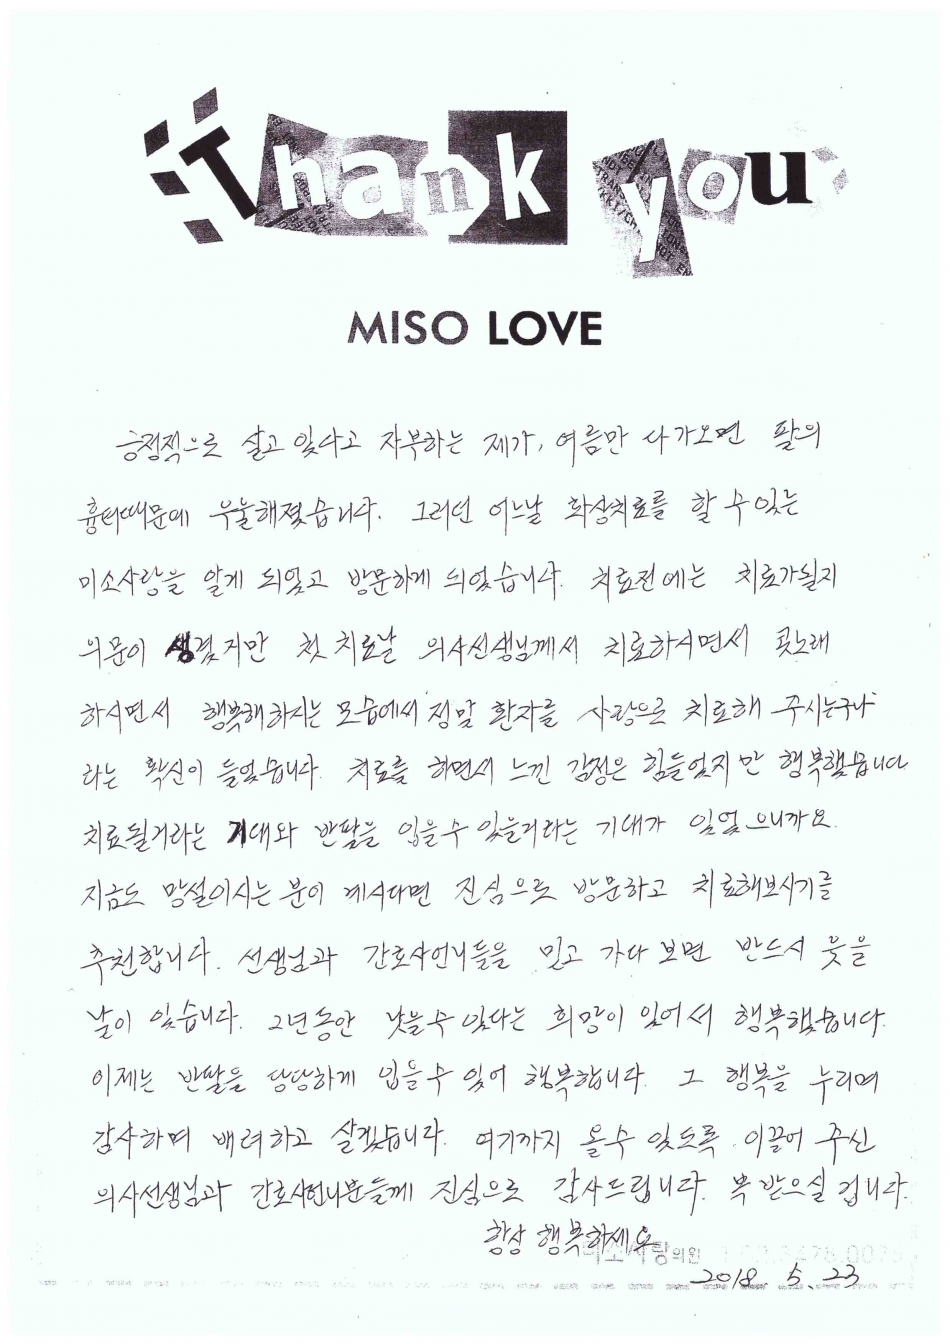 Thank you
MISO LOVE
긍정적으로 살고 있다고 자부하는 제가, 여름만 다가오면 팔의
흉터때문에 우울해졌습니다. 그러던 어느날 화상치료를 할 수 있는
미소사랑을 알게 되었고 방문하게 되었습니다. 치료전에는 치료가될지
의문이 생겼지만 첫 치료날 의사선생님께서 치료하시면서 콧노래
하시면서 행복해하시는 모습에서 정말 환자를 사랑으로 치료해 주시는구나
라는 확신이 들었습니다. 치료를 하면서 느낀 감정은 힘들었지만 행복했습니다
치료될거라는 기대와 반팔을 입을수 있을거라는 기대가 있었으니까요.
지금도 망설이시는 분이 계시다면 진심으로 방문하고 치료해보시기를
추천합니다. 선생님과 간호사언니들을 믿고 가다 보면 반드시 웃을
날이 있습니다. 2년동안 낫을수있다는 희망이 있어서 행복했습니다.
이제는 반팔을 당당하게 입을수 있어 행복합니다. 그 행복을 누리며
감사하며 배려하고 살겠습니다. 여기까지 올수 있도록 이끌어 주신
의사선생님과 간호사언니분들께 진심으로 감사드립니다. 복 받으실 겁니다.
항상 행복하세요
미소사랑의원
2018. 5. 23